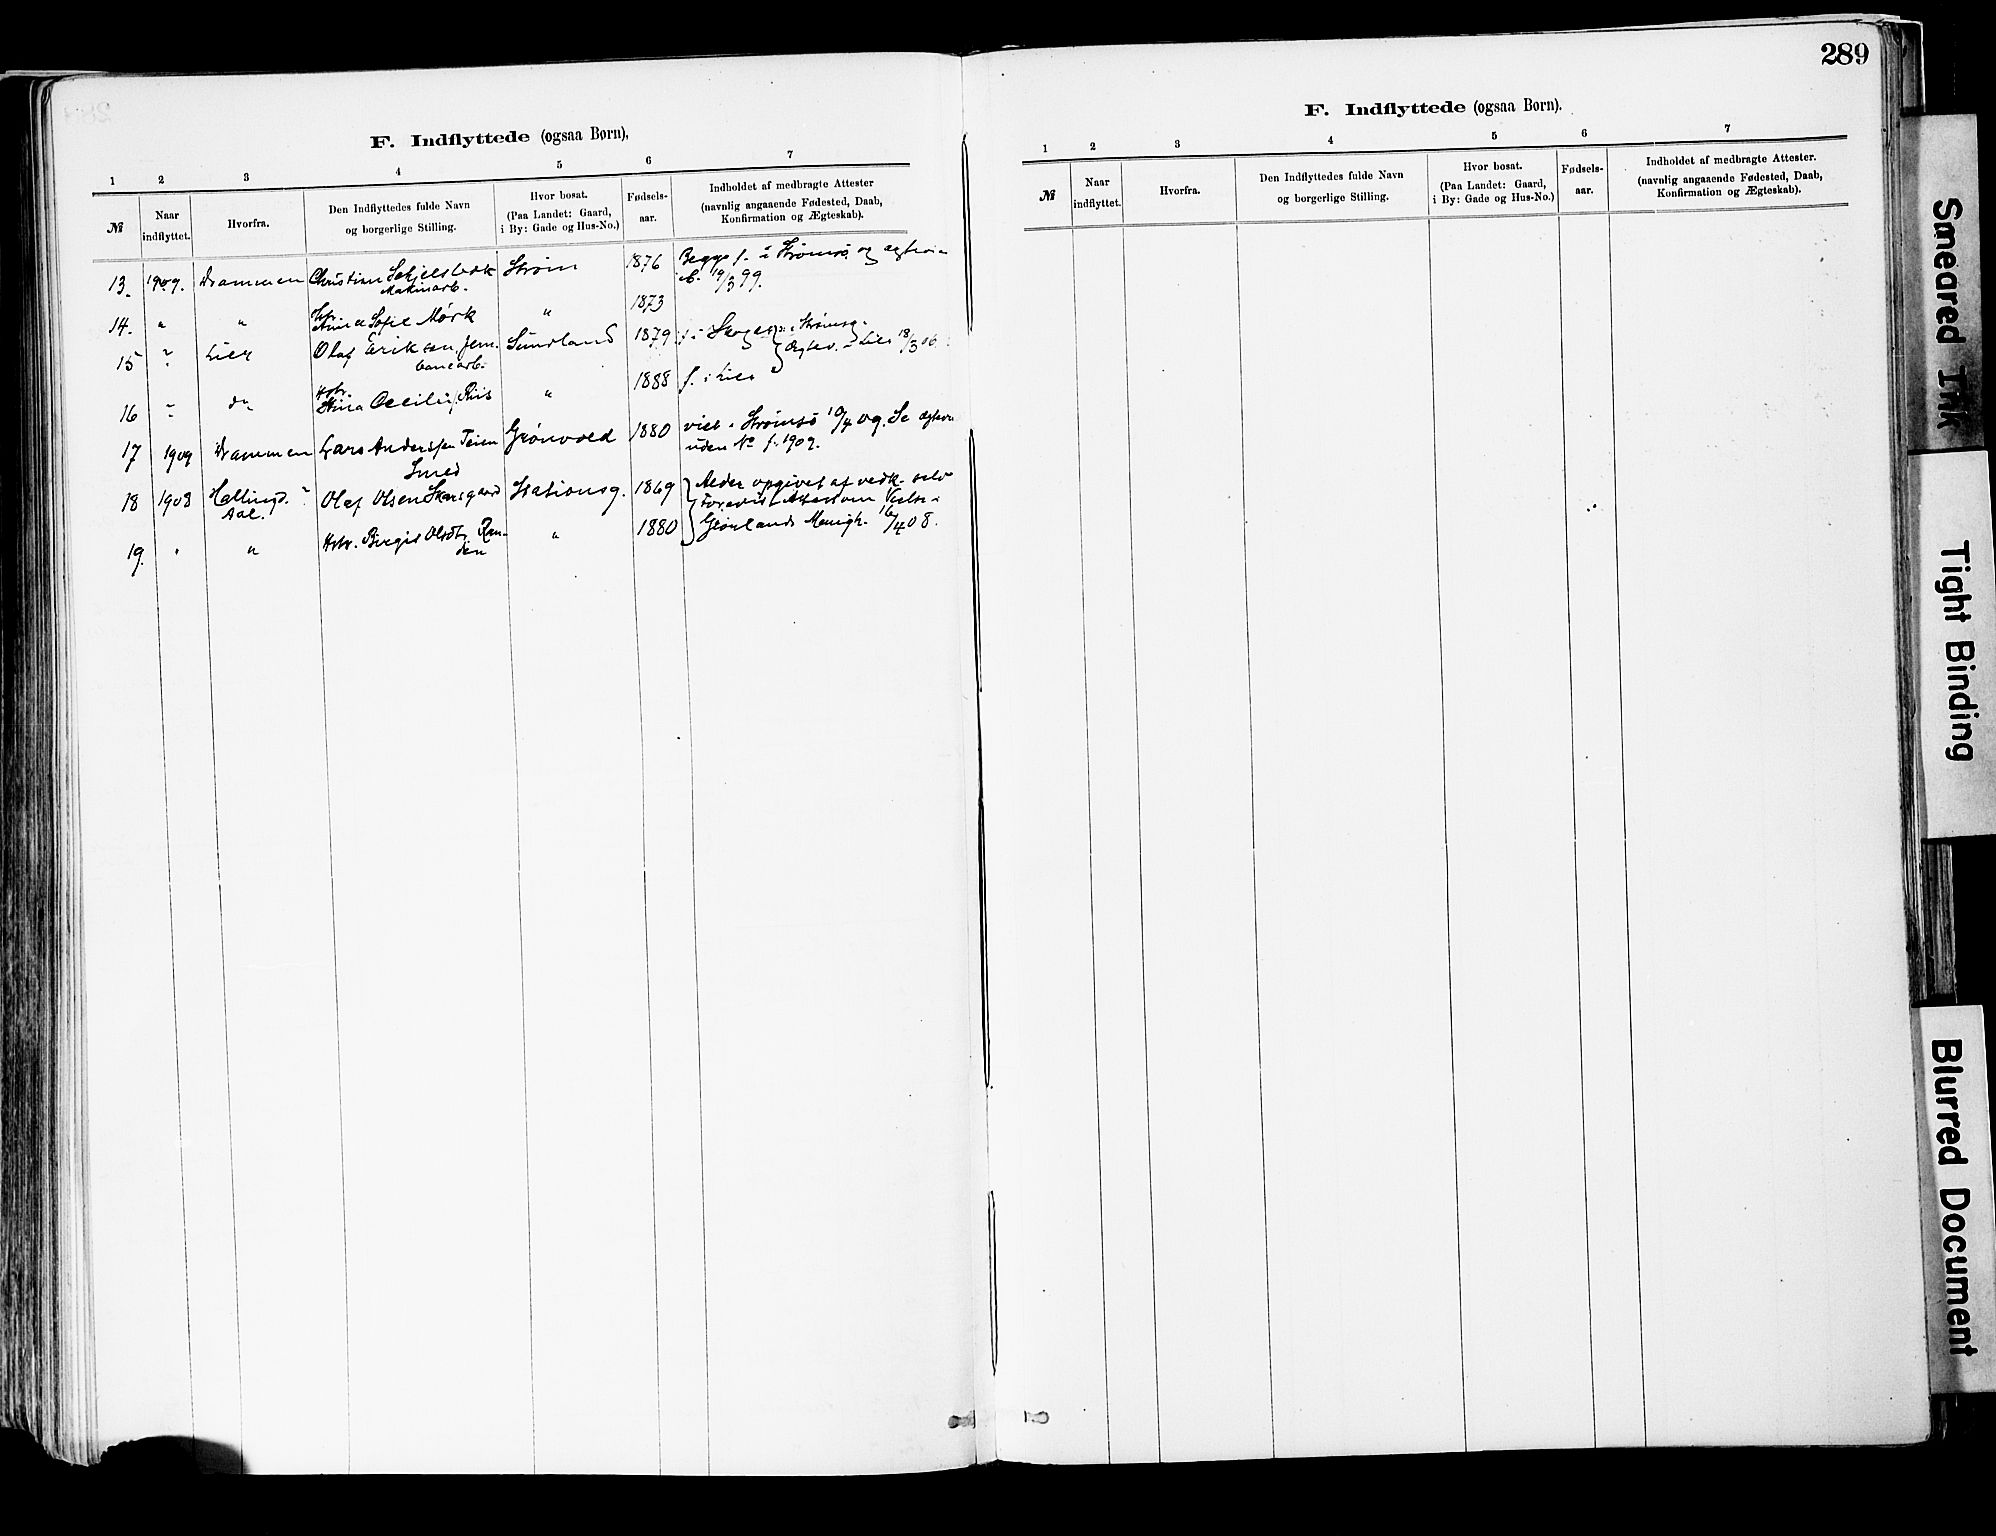 289
F. Indflyttede (ogsaa Børn),
1 2 3 4 5 6 7
№ Naar indflyttet. Hvorfra. Den Indflyttedes fulde Navn og borgerlige Stilling. Hvor bosat. (Paa Landet: Gaard, i By: Gade og Hus-No.) Fødsels-aar. Indholdet af medbragte Attester (navnlig angaaende Fødested, Daab, Konfirmation og Ægteskab).
13. 1909. Drammen Christian Strøm 1876 Begge f. i Strømsø og
19/3 99.
14. " " Sofie Mørk " 1873
15 " Lier Olaf Eriksen Jern- Sundland 1879 f. i
banearb. Lier 18/3 06
16 " do Hstr. Cecilie Riis " 1888 f. i Lier
17 1909 Drammen Lars Anderssen Teien Grønvold 1880 viet i Strømsø 10/4 09. Se
Smed uden No f. 1909.
18 1908 Hallingd. Olaf Olsen Skarsgaard Stationsg. 1869 Alder opgivet af vedk. selv
Aal. Attest om Vielse i
19. " " Hstr. Birgit Olsdtr. Ran- " 1880 Grønlands Menigh. 16/4 08.
den
F. Indflyttede (ogsaa Børn).
1 2 3 4 5 6 7
№ Naar indflyttet. Hvorfra. Den Indflyttedes fulde Navn og borgerlige Stilling. Hvor bosat. (Paa Landet: Gaard, i By: Gade og Hus-No.) Fødsels-aar. Indholdet af medbragte Attester. (navnlig angaaende Fødested, Daab, Konfirmation og Ægteskab).
Smeared Ink
Tight Binding
Blurred Document